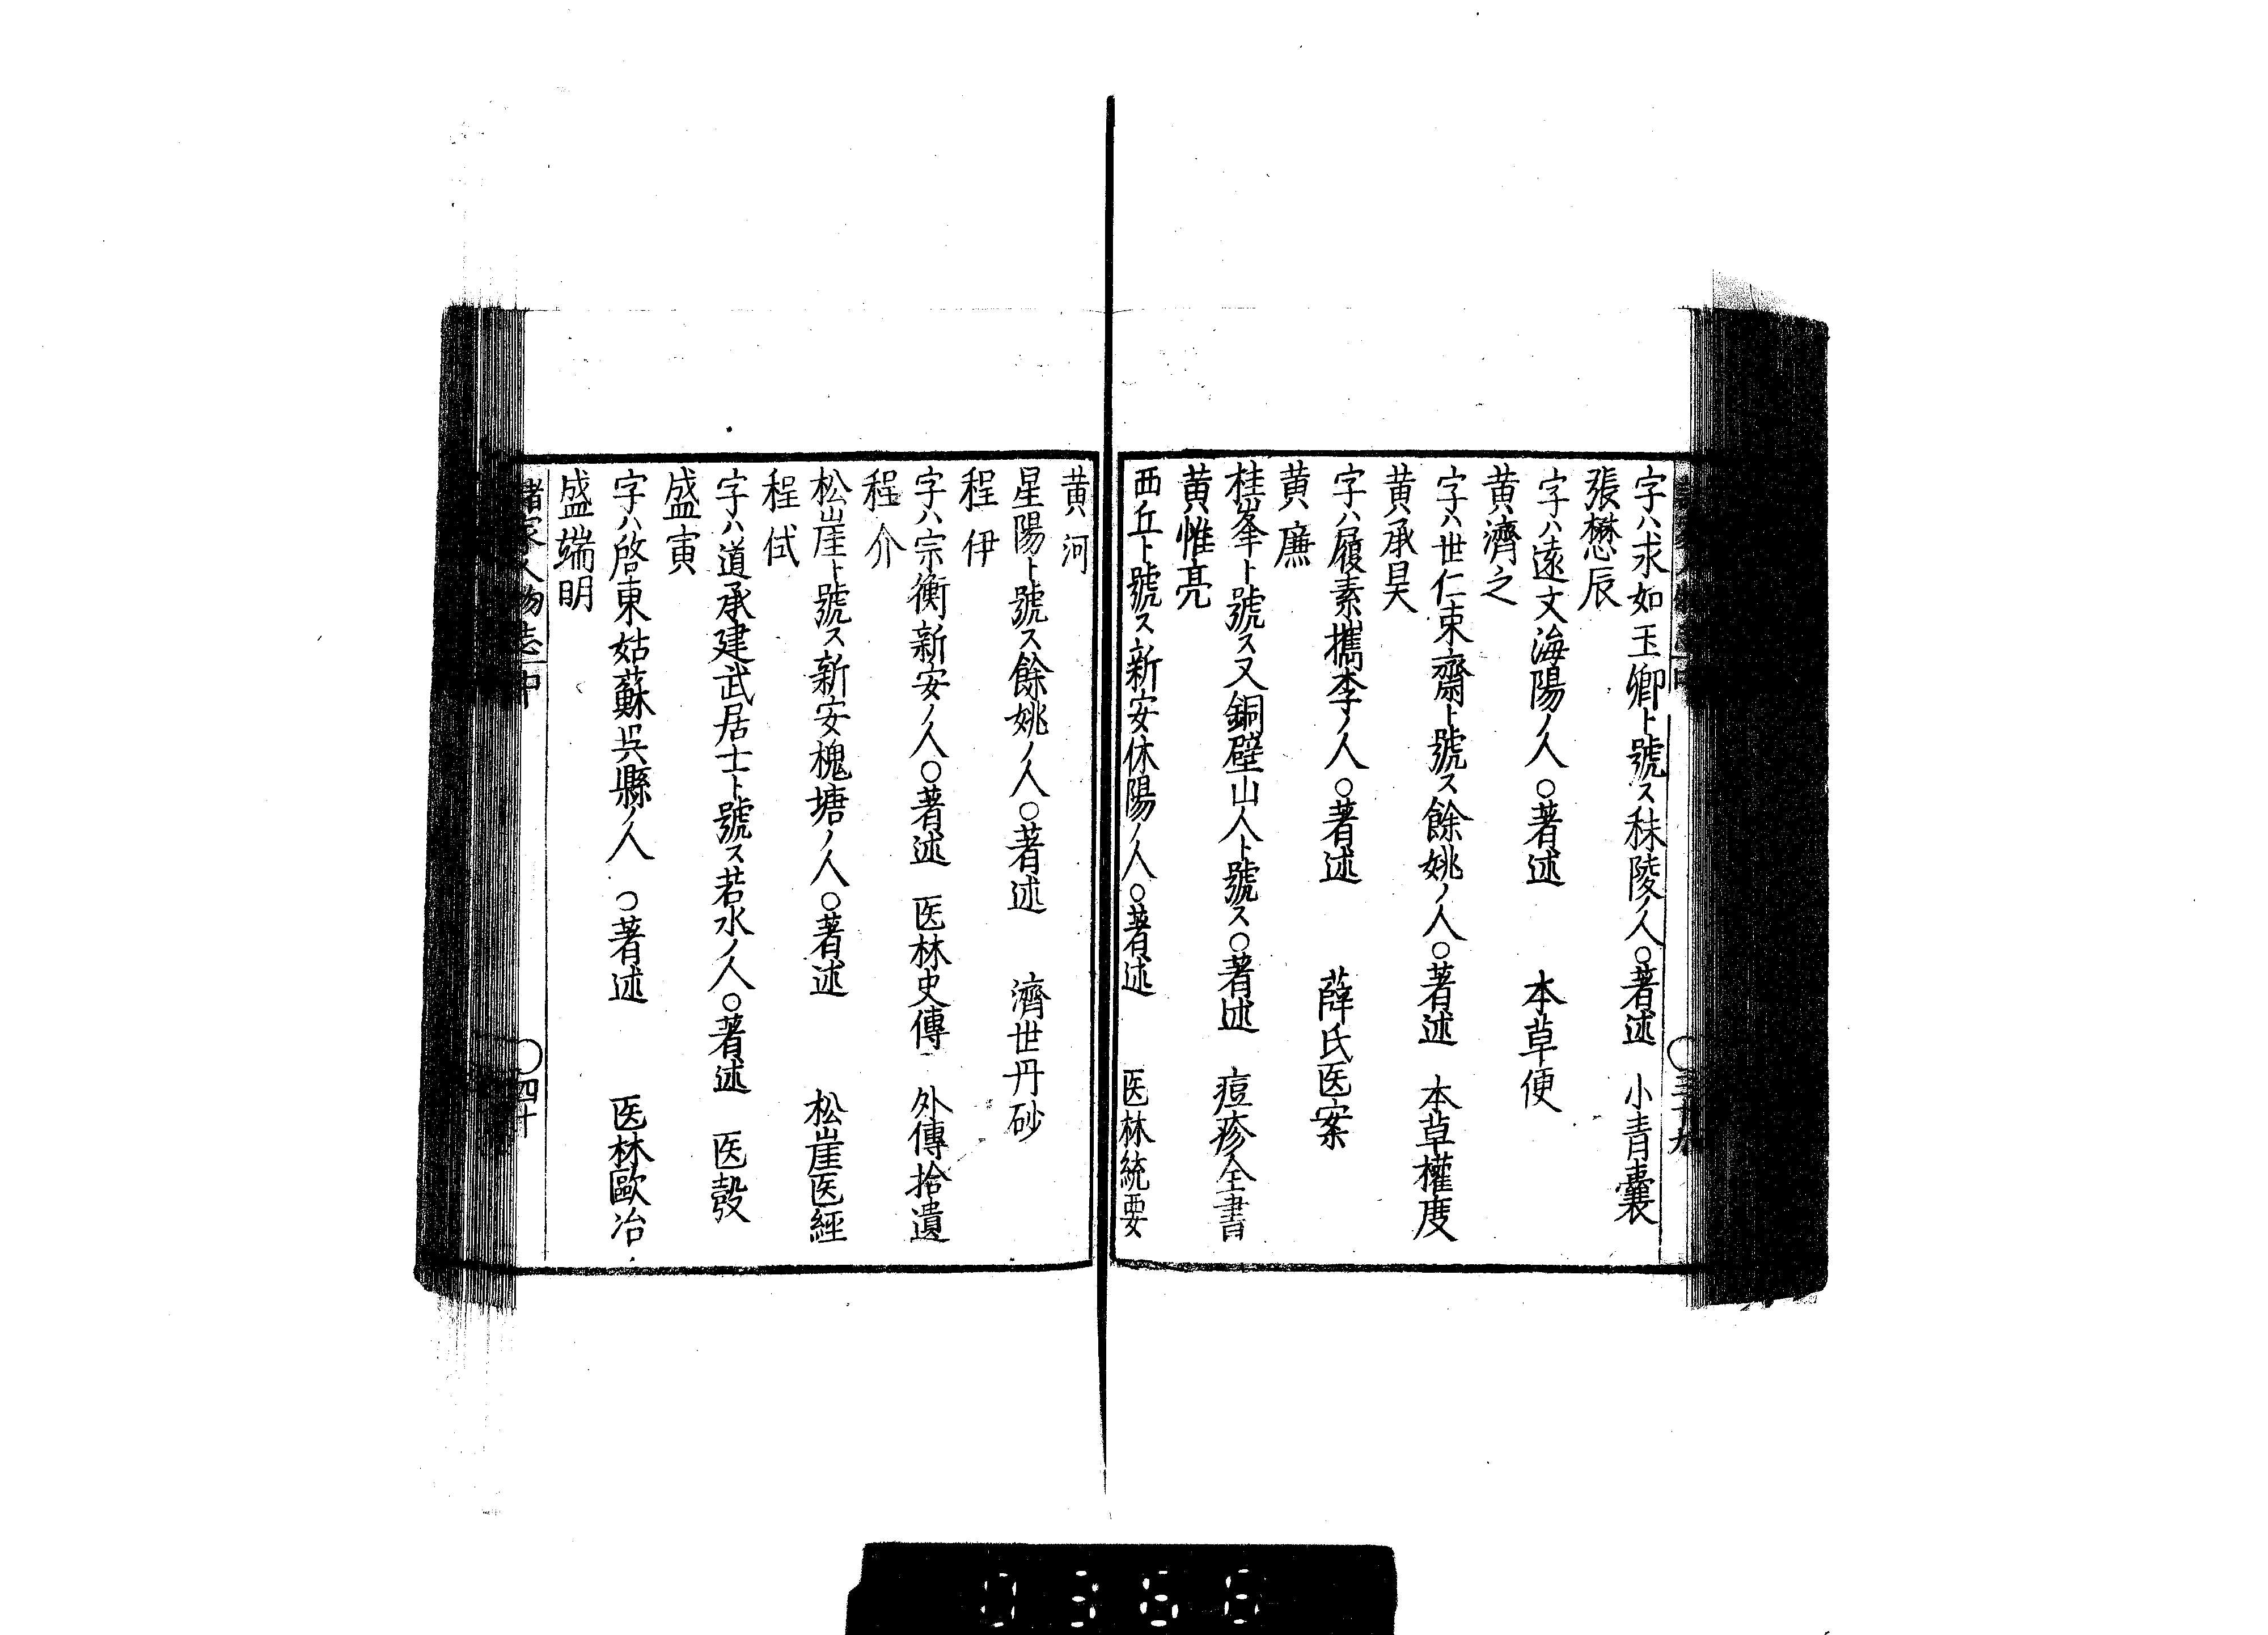 字ハ求如玉卿ト號ス秣陵ノ人○著述　小青囊
張懋辰
字ハ遠文海陽ノ人○著述　本草便
黄濟之
字ハ世仁束齋ト號ス餘姚ノ人○著述　本草權度
黄承昊
字ハ履素攜李ノ人○著述　薛氏医案
黄廉
桂峯ト號ス又銅壁山人ト號ス○著述　痘疹全書
黄惟亮
西丘ト號ス新安休陽ノ人○著述　医林統要
黄河
星陽ト號ス餘姚ノ人○著述　濟世丹砂
程伊
字ハ宗衡新安ノ人○著述　医林史傳　外傳拾遺
程介
松崖ト號ス新安槐塘ノ人○著述　松崖医經
程伒
字ハ道承建武居士ト號ス若水ノ人○著述　医彀
盛寅
字ハ啓東姑蘇呉縣ノ人○著述　医林歐冶
盛端明
諸家人物志　中　○四十